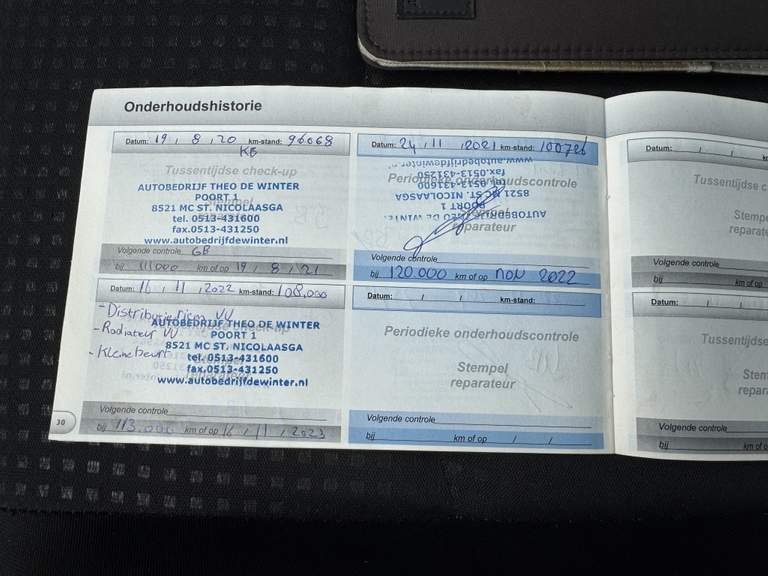 Onderhoudshistorie
Datum: 19 / 8 / 20 km-stand: 96068
KB
Tussentijdse check-up
AUTOBEDRIJF THEO DE WINTER
POORT 1
8521 MC ST. NICOLAASGA
tel. 0513-431600
fax.0513-431250
www.autobedrijfdewinter.nl
Volgende controle GB
bij 111000 km of op 19 / 8 / 21
Datum: 24 / 11 / 2021 km-stand: 100726
www.autobedrijfdewinter
fax.0513-431250
Periodieke onderhoudscontrole
tel. 0513-431600
8521 MC ST. NICOLAASGA
POORT 1
AUTOBEDRIJF THEO DE WINTER
Stempel
reparateur
Volgende controle
bij 120.000 km of op nov 2022
Datum: 16 / 11 / 2022 km-stand: 108,000
- Distributieriem VV
- Radiateur VV
- Kleine beurt
AUTOBEDRIJF THEO DE WINTER
POORT 1
8521 MC ST. NICOLAASGA
tel. 0513-431600
fax.0513-431250
www.autobedrijfdewinter.nl
Volgende controle
bij 113.000 km of op 16 / 11 / 2023
30
Datum: / / km-stand:
Periodieke onderhoudscontrole
Stempel
reparateur
Volgende controle
bij km of op / /
Datum: / /
Tussentijdse c
Stempe
reparate
Volgende controle
bij km of op
Datum: / /
Tussentijdse
Stem
repara
Volgende controle
bij km of op